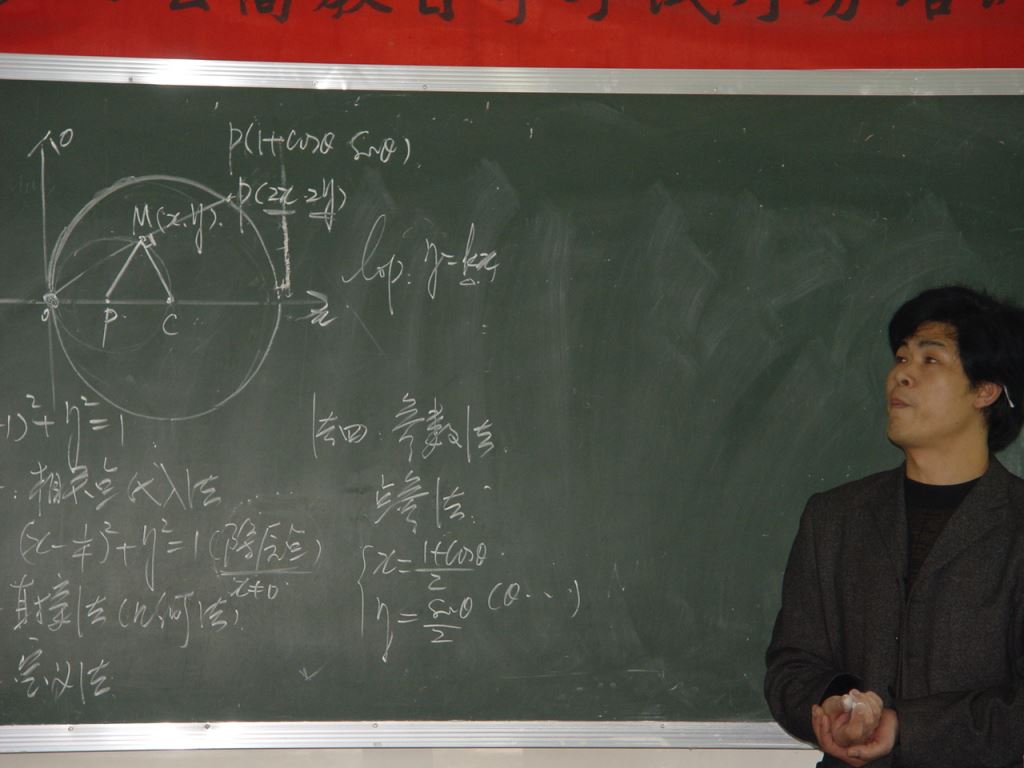 高教自学考试考务培训
P(1+cosθ sinθ)
P(2x 2y)
M(x,y)
lop: y=kx
o P C x
-1)²+y²=1
相关点代入法
(x-½)²+y²=1(除原点)
x≠0
直接法(几何法)
定义法
法四:参数法
点参法:
{x=1+cosθ/2
y=sinθ/2 (θ···)